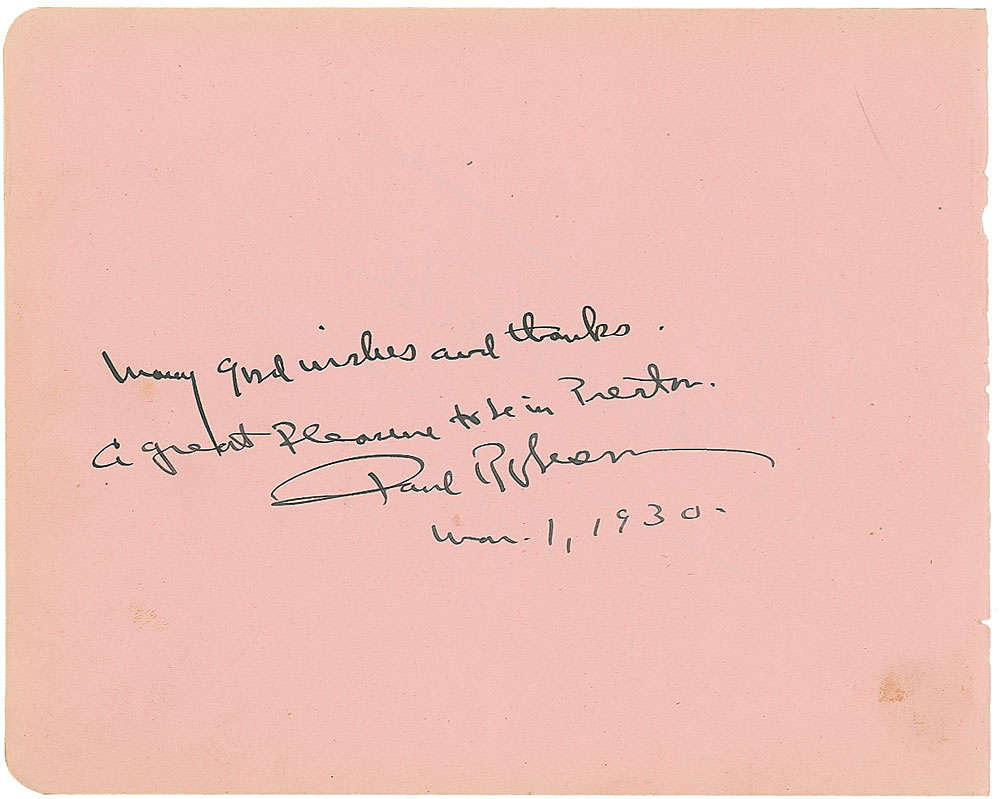 Many good wishes and thanks.
A great pleasure to be in Preston.
Paul Robeson
Mar. 1, 1930.